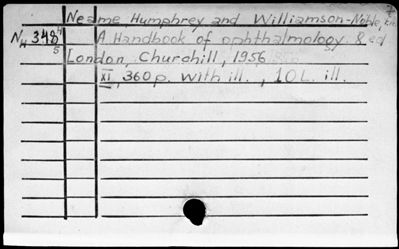 Neame Humphrey and Williamson-Noble,
A Handbook of ophthalmology & ed
5
London, Churchill, 1956
XI, 360 p. with ill., 10 L. ill.